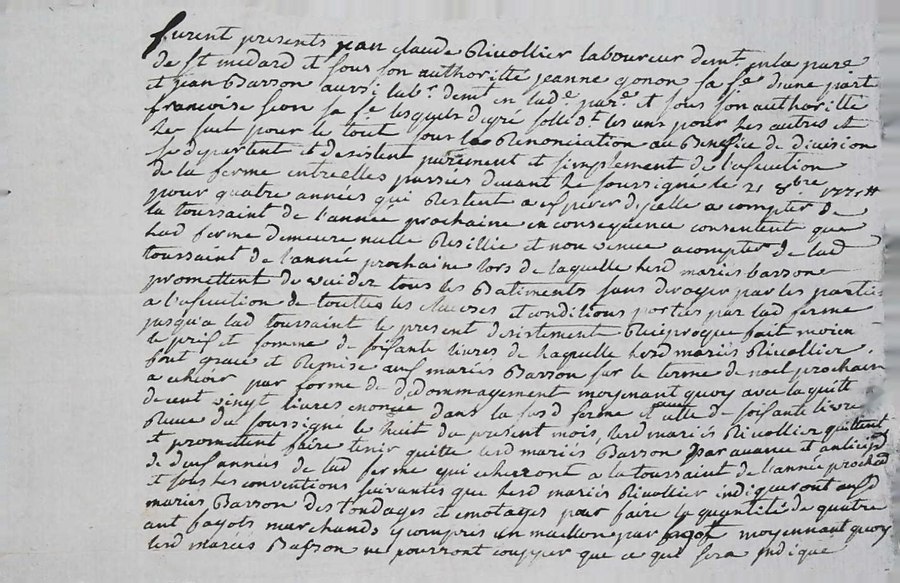 furent presents jean claude Rivollier laboureur demt. en la paroe
de St medard et sous son authoritté jeanne gonon sa fe. d'une part
et jean Basson aussi labr. demt en lade. paroe. et sous son authoritté
francoise sion sa fe lesquels de gré sollidt. les uns pour les autres et
seul pour le tout sous la Renonciation au Benefice de division
se departent et desistent purement et simplement de l'execution
de la ferme entrelles passées devant le soussigné le 21 8bre
pour quatre années qui Restent a expirer d'icelle a compter de
la toussaint de l'année prochaine en consequence consentent que
lad ferme demeure nulle Resillie et non venue a compter de lad
toussaint de l'année prochaine lors de laquelle lesd mariés Basson
promettent de vuider tous les Batiments sans deroger par les parties
a l'execution de touttes les clauses et conditions portées par lad ferme
jusqu'a lad toussaint le present desistement Reciproque fait moien
le prix et somme de soixante livres de laquelle lesd mariés Rivollier
font grace et Remise aux mariés Basson sur le terme de noel prochain
a echeoir par forme de dedommagement moyenant quoy avec la quitte
de cent vingt livres enoncée dans la susd ferme et celle de soixante livre
Reçue du soussigné le huit du present mois, lesd mariés Rivollier quittent
et promettent faire tenir quitte lesd mariés Basson par avance et anticipé
de deux années de lad ferme qui echeront a la toussaint de l'année prochaine
et sous les conventions suivantes que lesd mariés Rivollier indiqueront auxd
mariés Basson des tondages et emotages pour faire la quantité de quatre
cent fagots marchands y compris un maillon par fagot moyennant quoy
lesd mariés Basson ne pourront coupper que ce qui sera indiqué